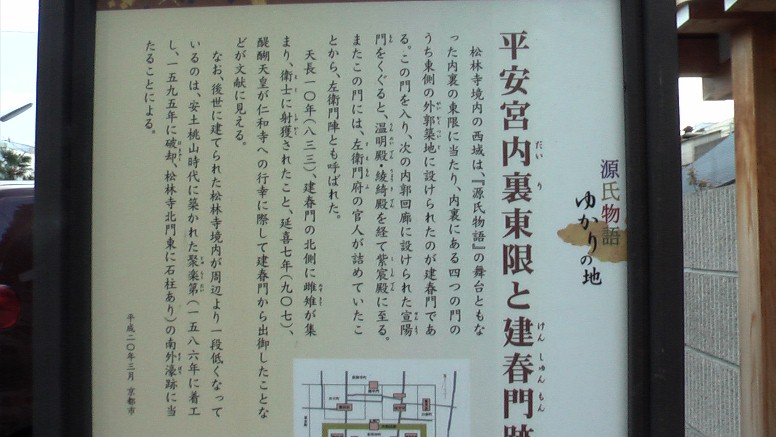 源氏物語
ゆかりの地
平安宮内裏東限と建春門跡
だいり
けんしゅんもん
松林寺境内の西域は、『源氏物語』の舞台ともな
った内裏の東限に当たり、内裏にある四つの門の
うち東側の外郭築地に設けられたのが建春門であ
る。この門を入り、次の内郭回廊に設けられた宣陽
門をくぐると、温明殿・綾綺殿を経て紫宸殿に至る。
またこの門には、左衛門府の官人が詰めていたこ
とから、左衛門陣とも呼ばれた。
天長一〇年(八三三)、建春門の北側に雌雉が集
まり、衛士に射獲されたこと、延喜七年(九〇七)、
醍醐天皇が仁和寺への行幸に際して建春門から出御したことな
どが文献に見える。
なお、後世に建てられた松林寺境内が周辺より一段低くなって
いるのは、安土桃山時代に築かれた聚楽第(一五八六年に着工
し、一五九五年に破却、松林寺北門東に石柱あり)の南外濠跡に当
たることによる。
平成二〇年三月 京都市